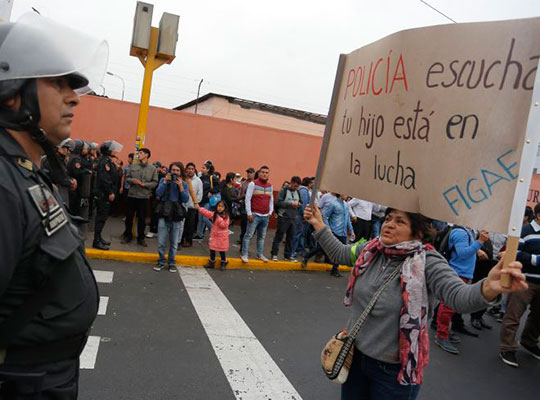 POLICÍA escucha
tu hijo está en
la lucha
FIGAE